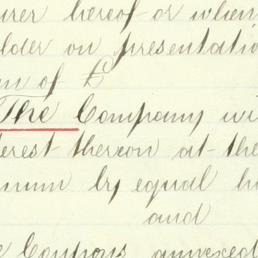 urer hereof or when
older on presentatio
um of £
The Company wi
terest thereon at the
nnum by equal ha
and
e Coupons annexed